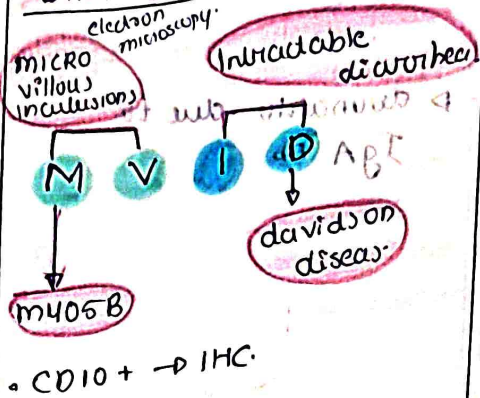 electron
microscopy.
MICRO
villous
inculusions
Intractable
diarrhea
M V I D
davidson
diseas.
MYO5B
• CD10 + → IHC.